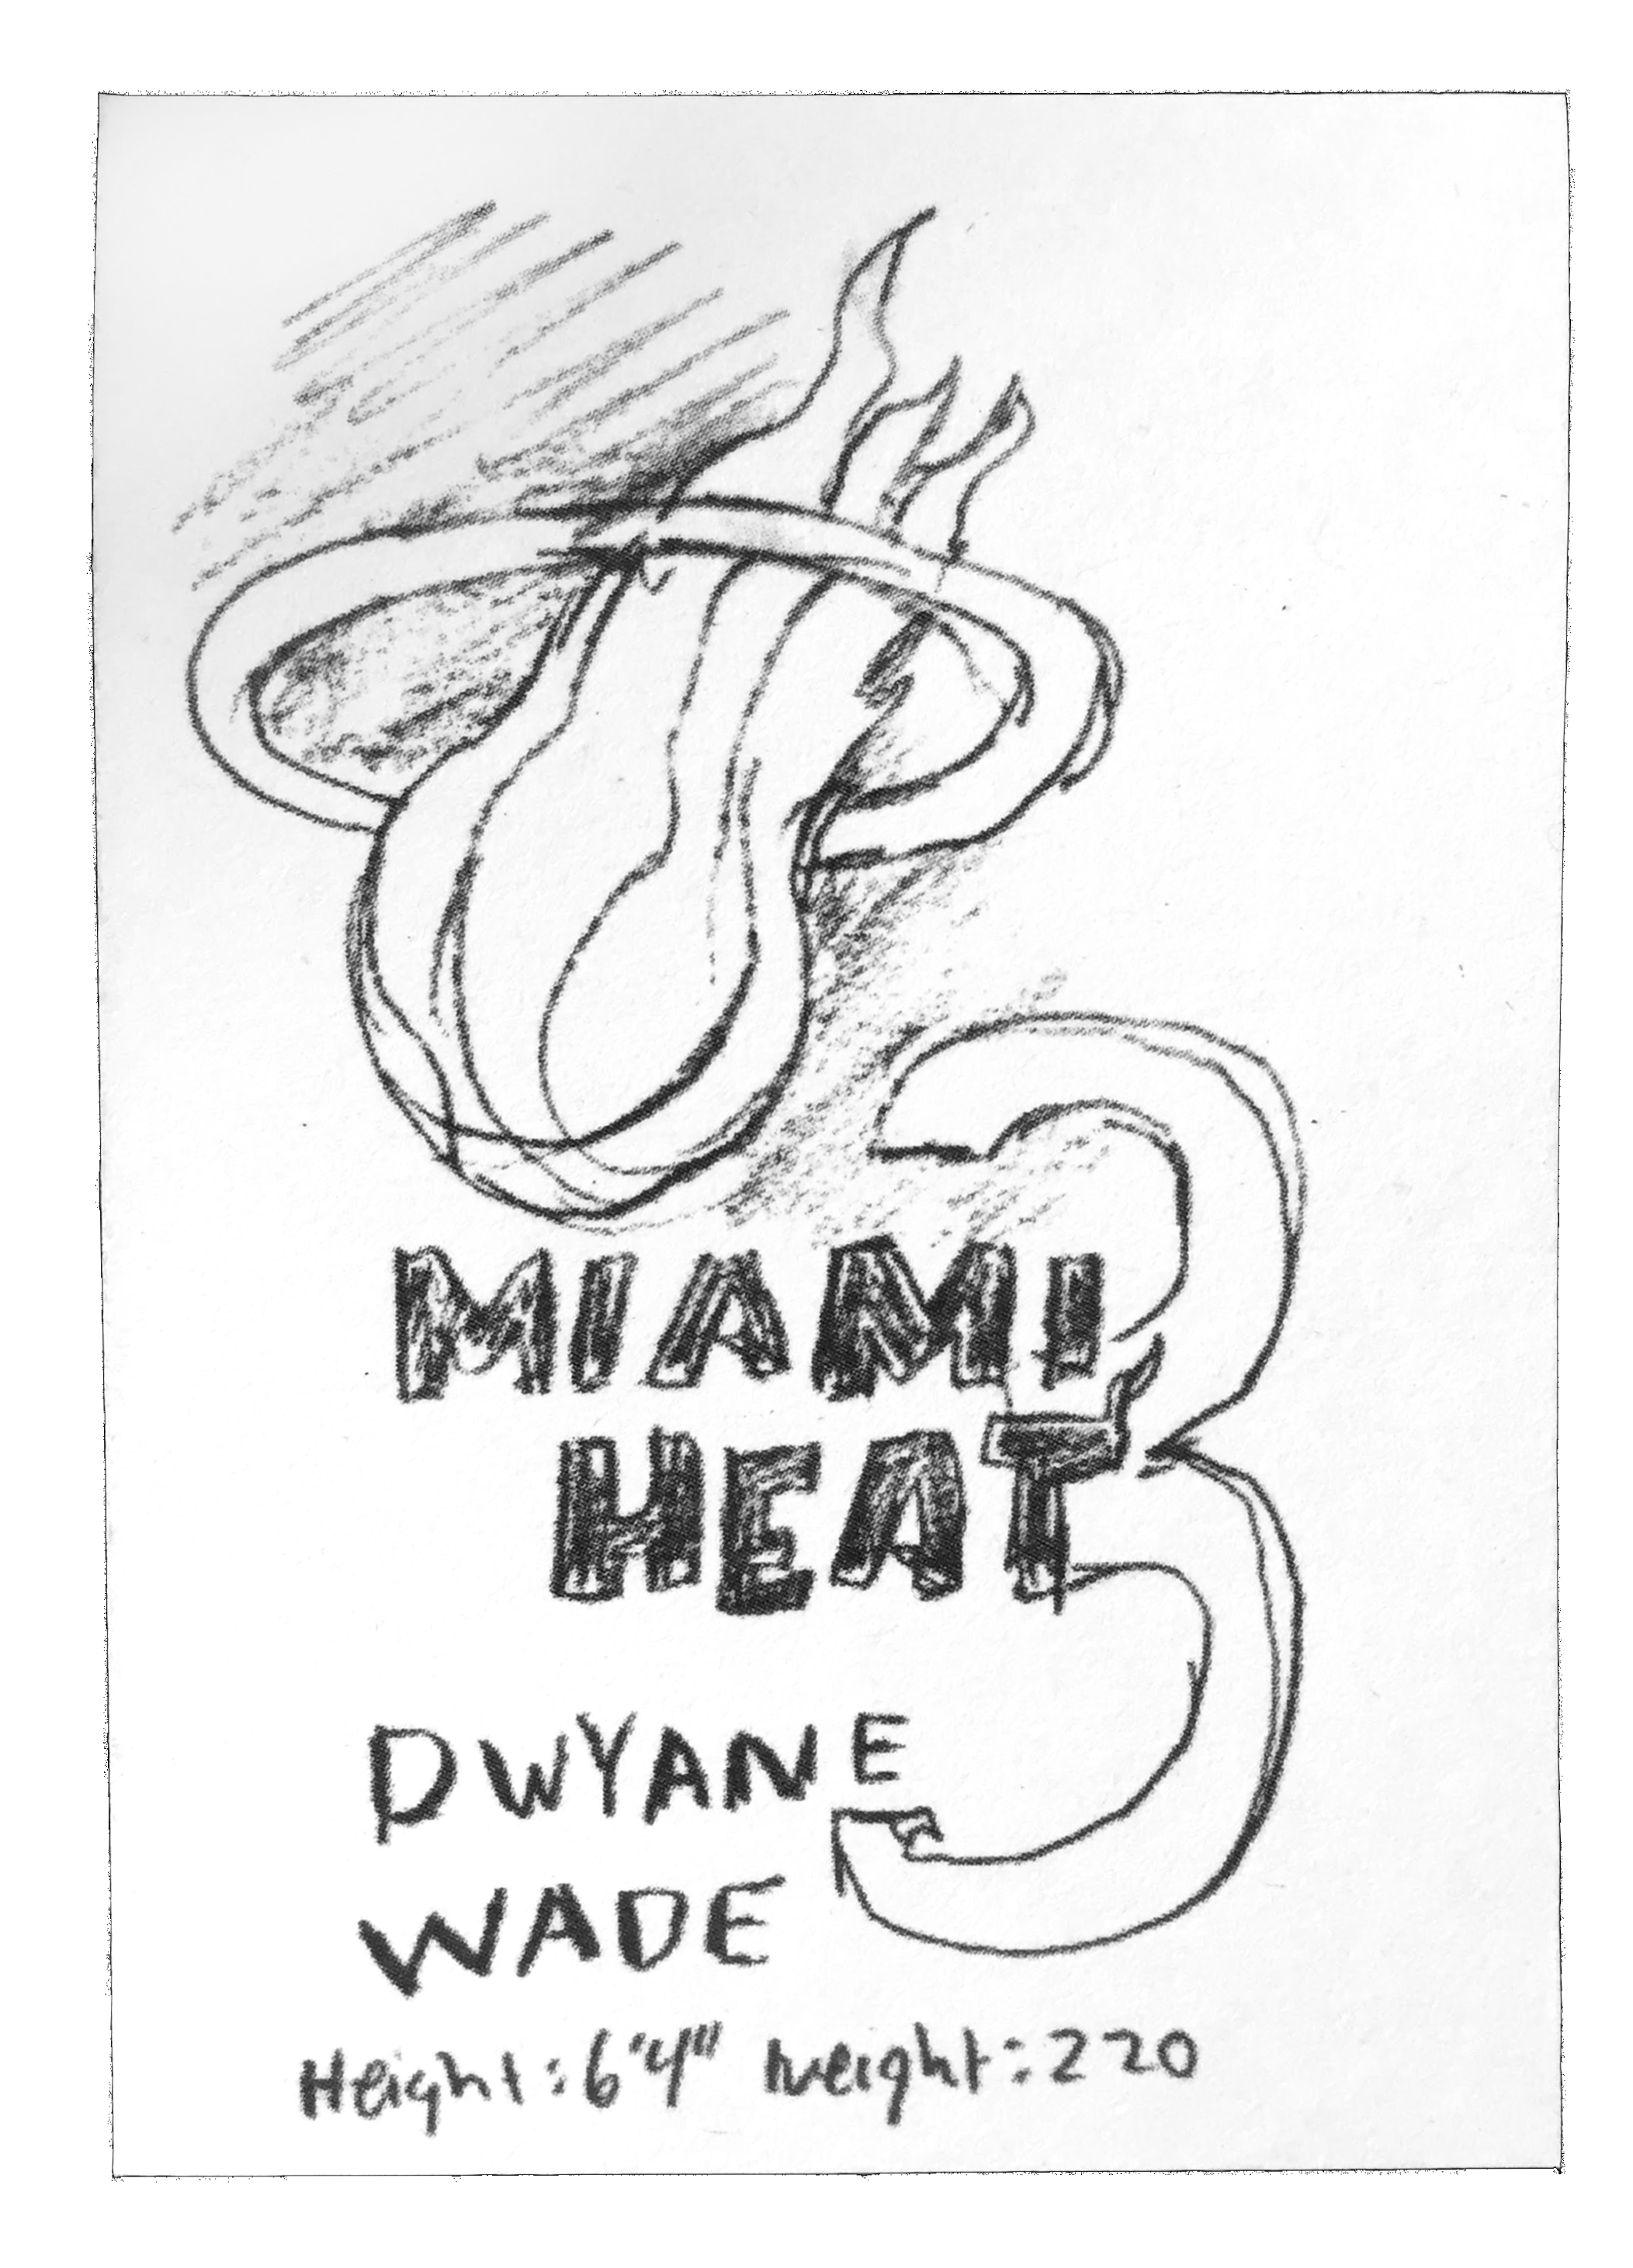 3
MIAMI
HEAT
DWYANE
WADE
Height: 6'4" weight: 220